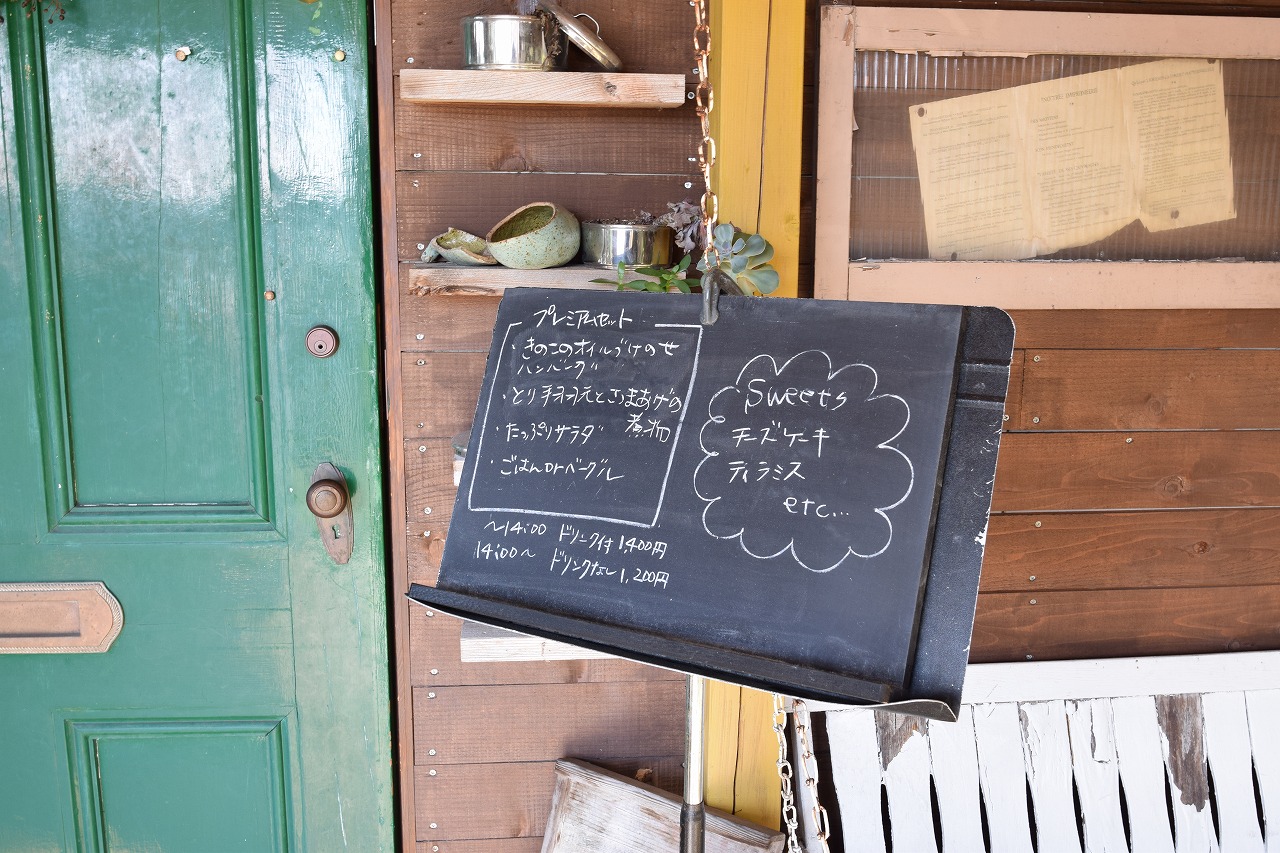 プレミアムセット
・きのこのオイルづけのせ
ハンバーグ
・とり手羽元とさつまあげの
煮物
・たっぷりサラダ
・ごはんorベーグル
～14:00 ドリンク付 1,400円
14:00～ ドリンクなし 1,200円
Sweets
チーズケーキ
ティラミス
etc...